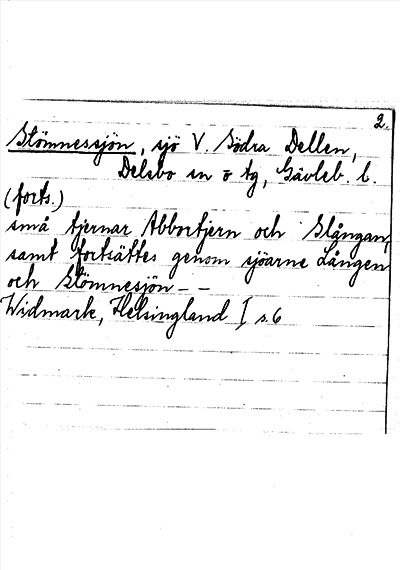 2.
Stömnessjön, sjö V. Södra Dellen,
Delsbo sn o tg, Gävleb. l.
(forts.)
små tjernar Abbortjern och Slången,
samt fortsättes genom sjöarne Lången
och Stömnesjön – –
Widmark, Helsingland I s. 6